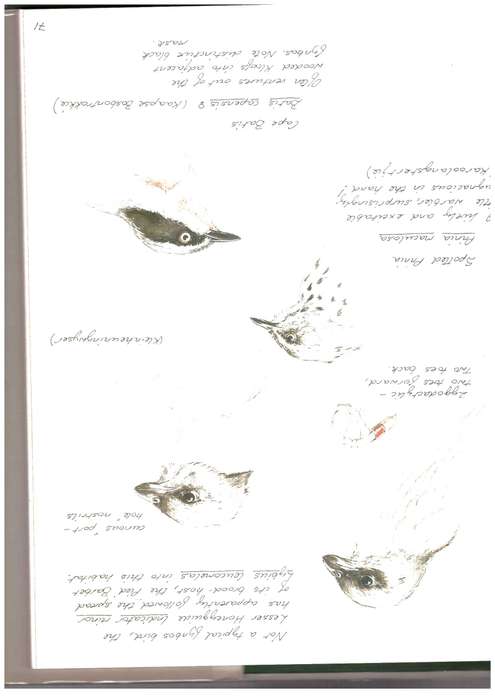 Not a typical fynbos bird, the
Lesser Honeyguide Indicator minor
has apparently followed the spread
of its brood-host, the Pied Barbet
Lybius leucomelas into this habitat.
curious "port-
hole" nostrils
Zygodactylic -
two toes forward,
two toes back.
(Kleinheuningwyser)
Spotted Prinia
Prinia maculosa
and excitable
warbler, surprisingly
ugnacious in the hand!
Karoolangstertjie)
Cape Batis
Batis capensis ♀ (Kaapse Bosbontrokkie)
Often ventures out of the
wooded kloofs into adjacent
fynbos. Note distinctive black
mask.
71